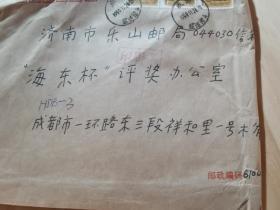 济南市乐山邮局044030信箱
"海东杯"评奖办公室
成都市一环路东三段祥和里一号木
邮政编码610